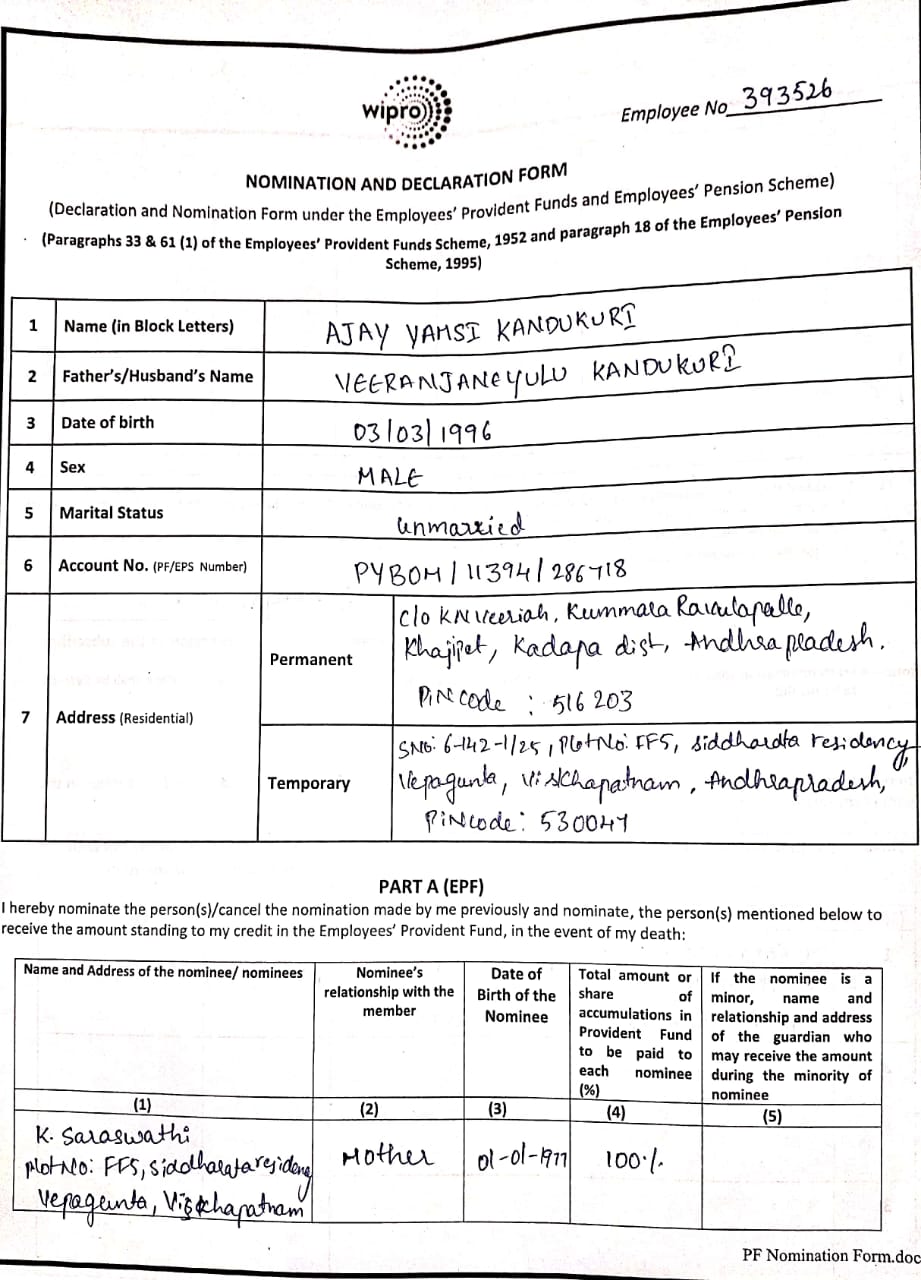 wipro
Employee No 393526
NOMINATION AND DECLARATION FORM
(Declaration and Nomination Form under the Employees' Provident Funds and Employees' Pension Scheme)
(Paragraphs 33 & 61 (1) of the Employees' Provident Funds Scheme, 1952 and paragraph 18 of the Employees' Pension
Scheme, 1995)
1 Name (in Block Letters) AJAY VAMSI KANDUKURI
2 Father's/Husband's Name VEERANJANEYULU KANDUKURI
3 Date of birth 03/03/1996
4 Sex MALE
5 Marital Status unmarried
6 Account No. (PF/EPS Number) PYBOM/11394/286718
7 Address (Residential)
Permanent
C/o KNVeeriah, Kummara
Khajipet, Kadapa dist, Andhra pradesh.
PiNcode : 516 203
Temporary
SNo: 6-142-1/25, Plot No: FF5, siddhardta residency,
Vepagunta, Andhrapradesh,
PiNcode: 530047
PART A (EPF)
I hereby nominate the person(s)/cancel the nomination made by me previously and nominate, the person(s) mentioned below to
receive the amount standing to my credit in the Employees' Provident Fund, in the event of my death:
Name and Address of the nominee/ nominees
Nominee's
relationship with the
member
Date of
Birth of the
Nominee
Total amount or
share of
accumulations in
Provident Fund
to be paid to
each nominee
(%)
If the nominee is a
minor, name and
relationship and address
of the guardian who
may receive the amount
during the minority of
nominee
(1) (2) (3) (4) (5)
K. Saraswathi
Plot No: FF5,
Vepagunta,
Mother
01-01-1977
100%
PF Nomination Form.doc